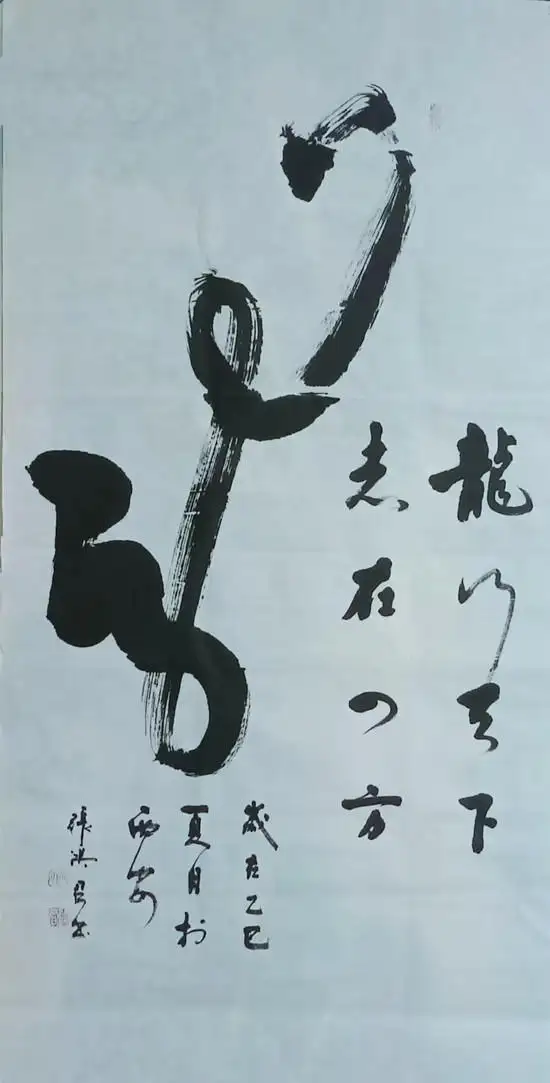 龍行天下
志在四方
歲在乙巳
夏月於
西安
張洪